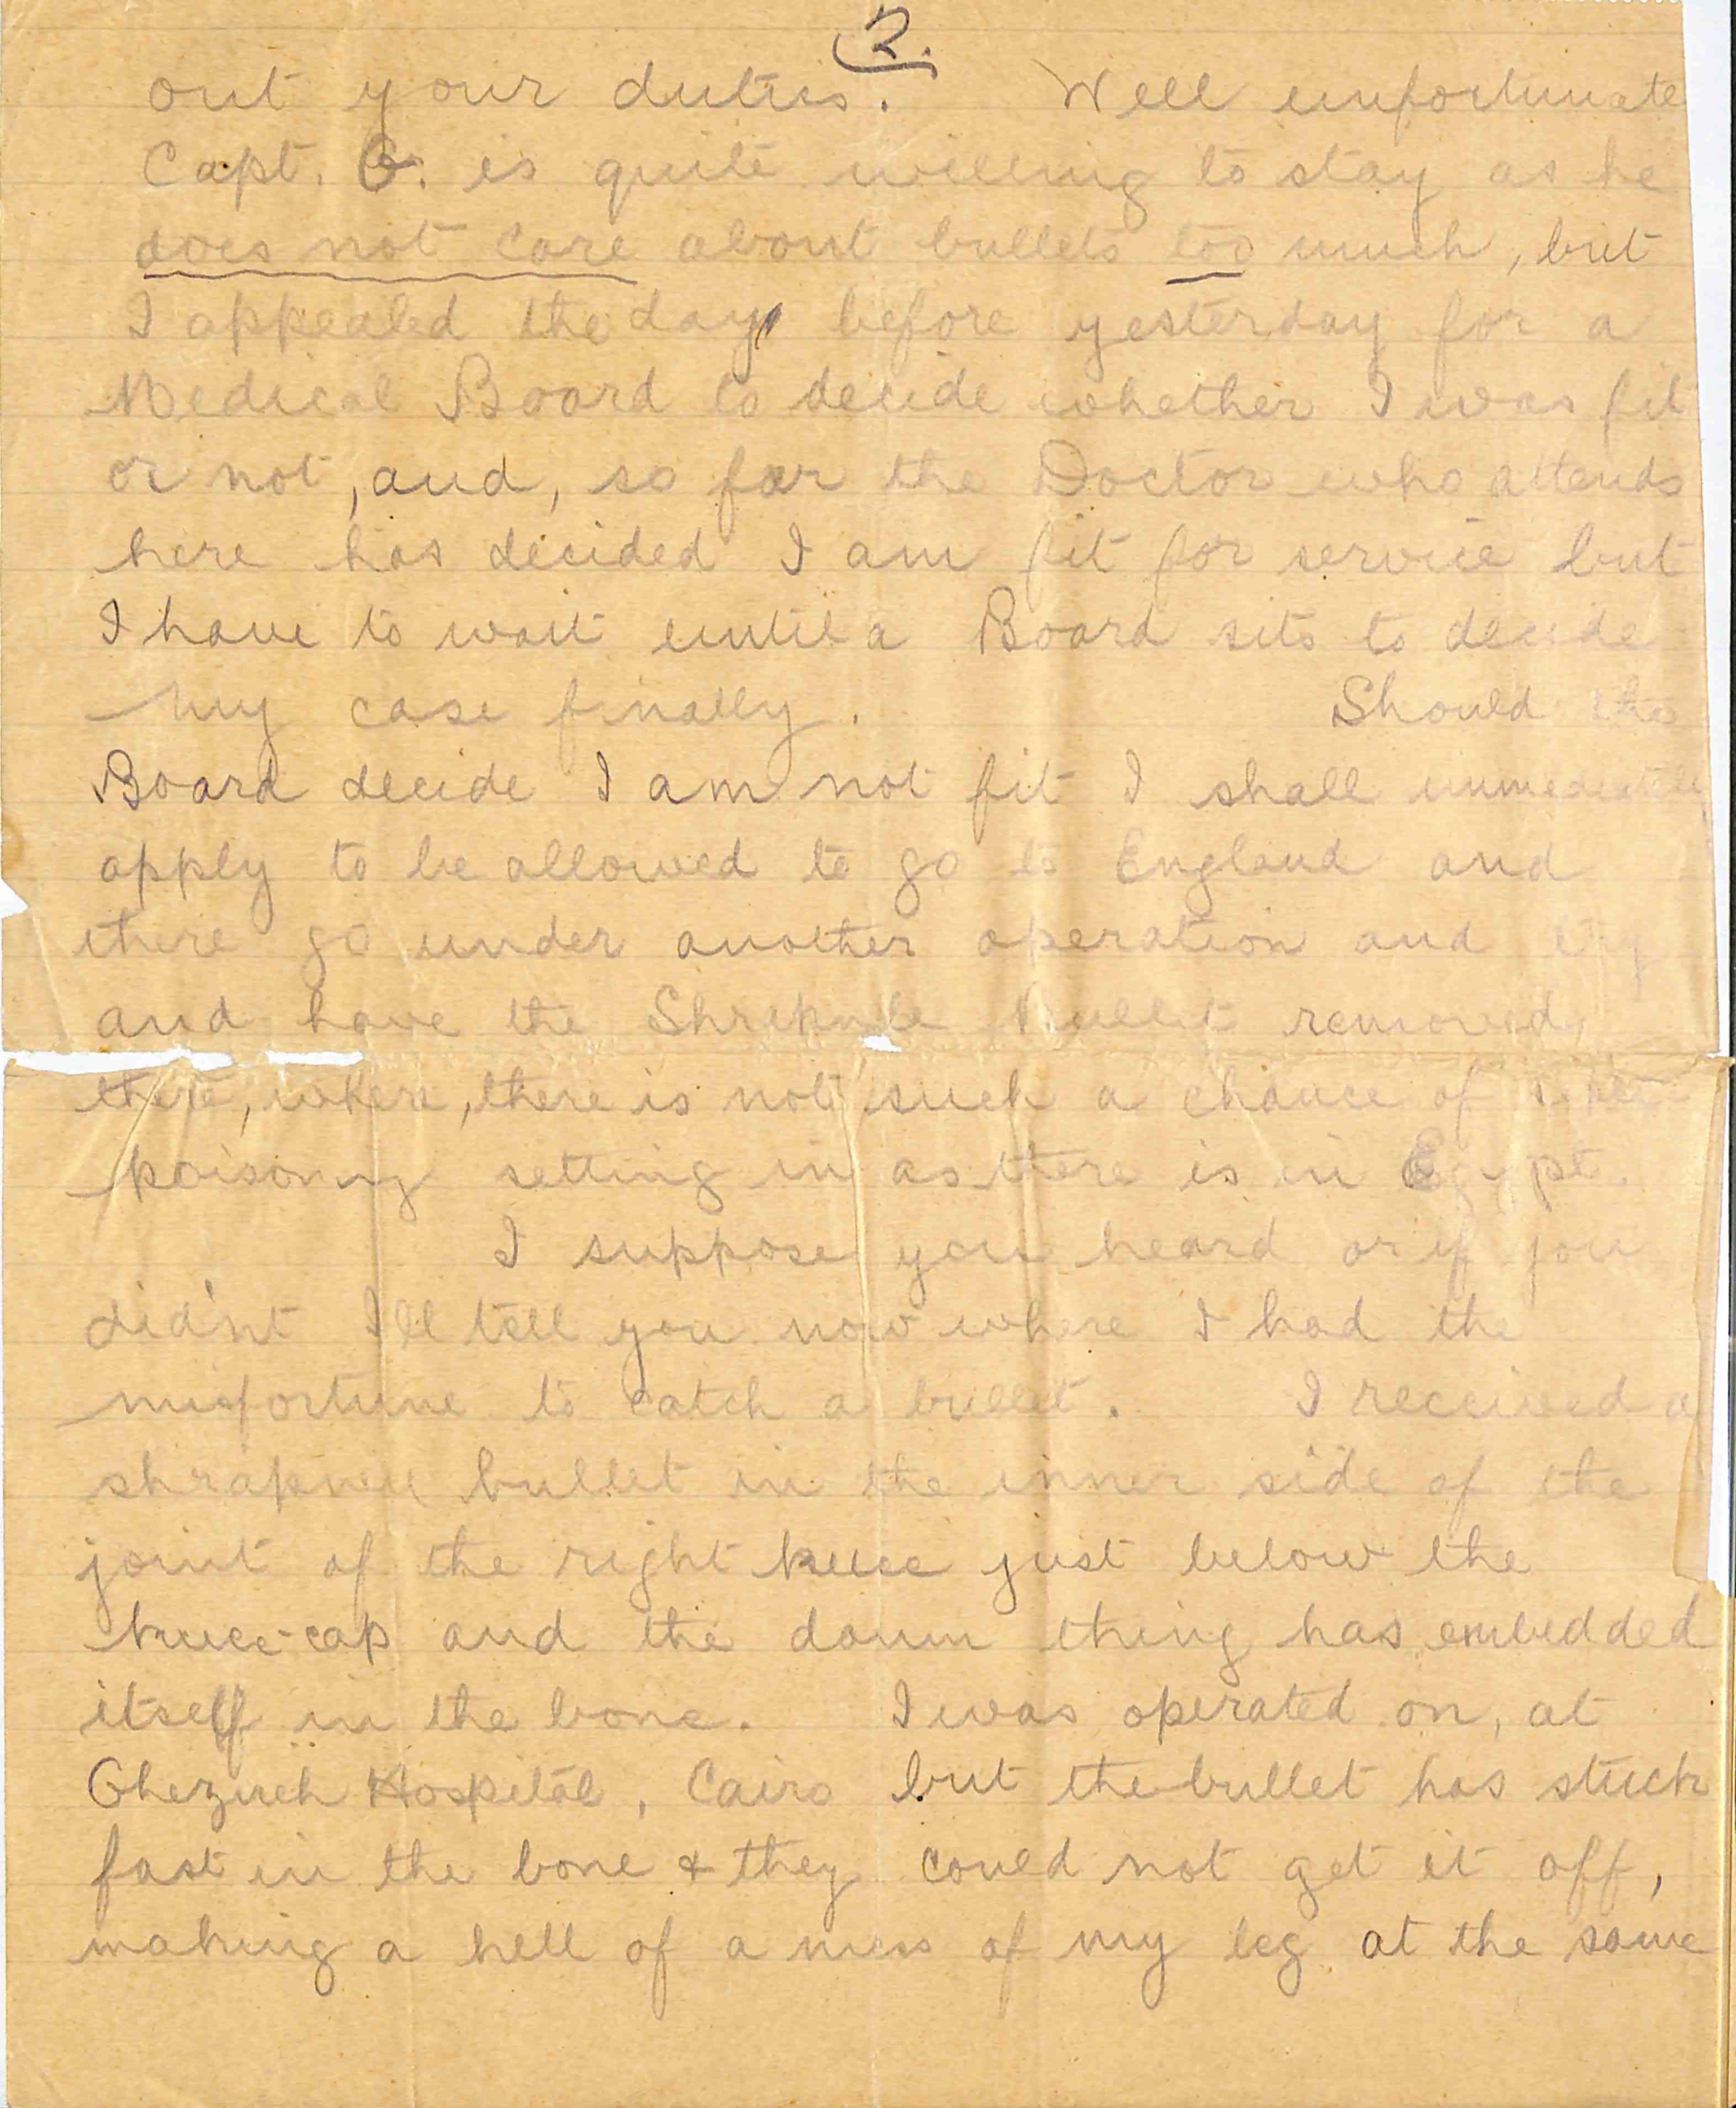 2.
out your duties. Well unfortunate
Capt. G. is quite willing to stay as he
does not care about bullets too much, but
I appealed the day before yesterday for a
Medical Board to decide whether I was fit
or not, and, so far the Doctor who attends
here has decided I am fit for service but
I have to wait until a Board sits to decide
my case finally. Should the
Board decide I am not fit I shall immediately
apply to be allowed to go to England and
there go under another operation and try
and have the Shrapnele Bullet removed
there, where, there is not such a chance of
poisoning setting in as there is in Egypt.
I suppose you heard or if you
did'nt I'll tell you now where I had the
misfortune to catch a bullet. I received a
shrapnell bullet in the inner side of the
joint of the right knee just below the
knee-cap and the damn thing has embedded
itself in the bone. I was operated on, at
Ghezireh Hospital, Cairo but the bullet has stuck
fast in the bone & they could not get it off,
making a hell of a mess of my leg at the same